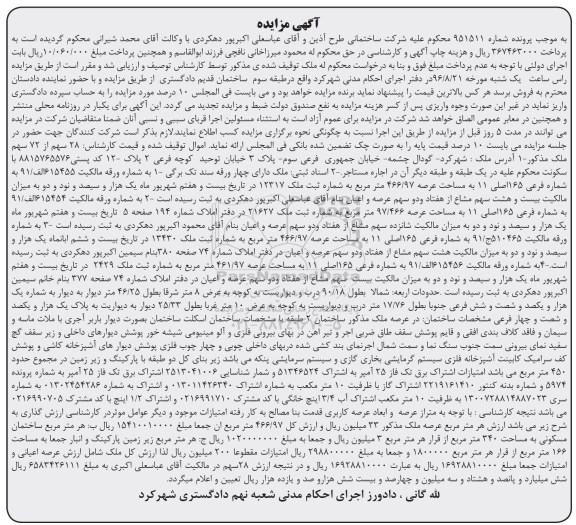 آگهی مزایده
به موجب پرونده شماره ۹۵۱۵۱۱ محکوم علیه شرکت ساختمانی طرح آذین و آقای عباسعلی اکبرپور دهکردی با وکالت آقای محمد شیرانی محکوم گردیده است به
پرداخت ۳۶۷۴۶۳۰۰۰ ریال و هزینه چاپ آگهی و کارشناسی در حق محکوم له محمود میرزاخانی نافچی فرزند ابوالقاسم و همچنین پرداخت مبلغ ۱۰/۰۶۰/۰۰۰ریال بابت
اجرای دولتی با توجه به عدم پرداخت مبلغ فوق و بنا به درخواست محکوم له ملک توقیف شده ی مذکور توسط کارشناس توصیف و ارزیابی شد و مقرر است از طریق مزایده
راس ساعت یک شنبه مورخه ۹۶/۸/۲۱در دفتر اجرای احکام مدنی شهرکرد واقع درطبقه سوم ساختمان قدیم دادگستری از طریق مزایده و با حضور نماینده دادستان
محترم به فروش برسد هر کس بالاترین قیمت را پیشنهاد نماید برنده مزایده خواهد بود و می بایست فی المجلس ۱۰ درصد مورد مزایده را به حساب سپرده دادگستری
واریز نماید در غیر این صورت وجوه واریزی پس از کسر هزینه مزایده به نفع صندوق دولت ضبط و مزایده تجدید می گردد. این آگهی برای یکبار در روزنامه محلی منتشر
و همچنین در معابر عمومی الصاق خواهد شد شرکت در مزایده برای عموم آزاد است به استثناء مسئولین اجرا قربای سببی و نسبی آنان ضمنا متقاضیان شرکت در مزایده
می توانند در مدت ۵ روز قبل از مزایده از طریق این اجرا نسبت به چگونگی نحوه برگزاری مزایده کسب اطلاع نمایند.لازم بذکر است شرکت کنندگان جهت حضور در
جلسه مزایده می بایست ۱۰ درصد قیمت پایه را به صورت چک تضمین شده بانکی فی المجلس ارائه نماید. اموال توقیف شده و قیمت کارشناس: ۲۸ سهم از ۷۲ سهم
ملک مذکور-۱ آدرس ملک : شهرکرد- گودال چشمه- خیابان جمهوری فرعی سوم- پلاک ۳ خیابان توحید کوچه فرعی ۲ پلاک ۱۲- کد پستی۸۸۱۵۷۶۵۵۷۶ با
سکونت محکوم علیه در یک طبقه و طبقه دیگر آن در اجاره مستاجر.-۲ اسناد ثبتی: ملک دارای چهار ورقه سند تک برگی -۱ به شماره ورقه مالکیت ۶۱۵۴۵۵الف/۹۱ به
شماره فرعی ۱۶۵اصلی ۱۱ به مساحت عرصه ۴۶۶/۹۷ متر مربع به شماره ثبت ملک ۱۲۳۱۷ در تاریخ بیست و هفتم شهریور ماه یک هزار و سیصد و نود و دو به میزان
مالکیت بیست و هشت سهم مشاع از هفتاد ودو سهم عرصه و اعیان بنام آقای عباسعلی اکبرپور دهکردی به ثبت رسیده است -۲ به شماره ورقه مالکیت ۶۱۵۴۵۴الف/۹۱
به شماره فرعی ۱۶۵اصلی ۱۱ به مساحت عرصه ۹۷/۴۶۶ متر مربع به شماره ثبت ملک ۲۱۶۲۷ در دفتر املاک شماره ۱۹۴ صفحه ۵ تاریخ بیست و هفتم شهریور ماه
یک هزار و سیصد و نود و دو به میزان مالکیت شانزده سهم مشاع از هفتاد ودو سهم عرصه و اعیان بنام آقای محمود اکبرپور دهکردی به ثبت رسیده است -۳ به شماره
ورقه مالکیت ۵۱۰۴۶۵ج/۹۱ به شماره فرعی ۱۶۵اصلی ۱۱ به مساحت عرصه ۴۶۶/۹۷ متر مربع به شماره ثبت ملک ۱۳۴۳۰ در تاریخ بیست و ششم ابانماه یک هزار و
سیصد و نود و دو به میزان مالکیت هشت سهم مشاع از هفتاد ودو سهم عرصه و اعیان در دفتر املاک شماره ۷۴ صفحه ۳۸۰بنام سیمین اکبرپور دهکردی به ثبت رسیده
است.-۴به شماره ورقه مالکیت ۶۱۵۴۵۶الف/۹۱ به شماره فرعی ۱۶۵اصلی ۱۱ به مساحت عرصه ۴۶۱/۹۷ متر مربع به شماره ثبت ملک ۲۴۴۲۹ در تاریخ بیست و هفتم
شهریور ماه یک هزار و سیصد و نود و دو به میزان مالکیت بیست سهم مشاع از هفتاد ودو سهم عرصه و اعیان در دفتر املاک شماره ۷۴ صفحه ۳۷۷ بنام خانم سیمین
اکبرپور دهکردی به ثبت رسیده است .حدودات اربعه: شمالا بطول ۱۰/۱۸ درب و دیواریست به کوچه به عرض ۸ متر شرقا بطول ۴۶/۲۵ متر دیوار به دیوار به شماره یک
هزار و یکصد و شصت و شش فرعی جنوبا بطول ۱۷/۷۶ متر درب و دیواریست به کوچه به عرض ۱۰ متر غربا بطول ۲۵/۳۳ دیوار به دیواریت به پلاک یک هزار و یکصد
و شصت و چهار فرعی مشخصات ساختمان: در عرصه ملک مذکور ساختمان ۲طبقه با مشخصات ساختمان اسکلت ساختمان بصورت دیوار باربر آجری با ملات ماسه و
سیمان و فاقد کلاف بندی افقی و قایم پوشش سقف طاق ضربی اجر و تیر اهن در بهای بیرونی فلزی و آلو مینیومی شیشه خور پوشش دیوارهای داخلی و زیر سقف گچ
سفید نمای بیرونی سمت جنوب سنگ نما و سمت شمال اجرنمای بند کشی شده دربهای داخلی چوبی و چهار چوب فلزی پوشش دیوار های آشپزخانه کاشی و پوشش
کف سرامیک کابینت آشپزخانه فلزی سیستم گرمایشی بخاری گازی و سیستم سرمایشی پنکه می باشد زیر بنای کل دو طبقه با پارکینگ و زیر زمین در مجموع حدود
۴۵۰ متر مربع می باشد امتیازات اشتراک برق تک فاز ۲۵ آمپر به اشتراک ۵۱۳۴۶۵۲۴ و شمار شناسایی ۲۵۱۳۰۴۱۰۰۶ اشتراک برق تک فاز ۲۵ آمپر به شماره پرونده
۵۹۷۴ و شماره بدنه کنتور ۲۲۱۹۱۶۱۴۱۰ اشتراک گاز با ظرفیت ۱۰ متر مکعب به شماره اشتراک ۰۱۳۰۱۱۴۲۶۳۴۰ و اشتراک به شماره ۰۱۳۰۲۴۵۴۲۸۶ به شماره
سری ۱۳۰۰۷۲۸۸۱۴۸۸۷۰۲۳ با ظرفیت ۱۰ متر مکعب اشتراک آب ۳/۴ اینچ خانگی با کد مشترک ۰۲۱۶۹۹۱۷۱۰ و اشتراک ۱/۲ اینچ با کد مشترک ۰۲۱۶۹۹۰۷۰۵
می باشد نتیجه کارشناسی : با توجه به متراژ عرصه و ابعاد عرصه کاربری قدمت بنا مصالح به کار رفته امتیازات موجود و دیگر عوامل موثردر کارشناسی ارزش گذاری به
شرح زیر می باشد ارزش هر متر مربع عرصه ملک مذکور ۳۳ میلیون ریال و ارزش کل ۴۶۶/۹۷ متر مربع ان جمعا مبلغ ۱۵۴۱۰۰۱۰۰۰۰ ریال ب: هر متر مربع ساختمان
مسکونی به مساحت ۳۴۰ متر مربع از قرار هر متر مربع ۳ میلیون ریال و جمعا به مبلغ ۱۰۲۰۰۰۰۰۰۰ ریال ج: هر متر مربع زیر زمین پارکینگ و انبار جمعا به مساحت
۱۶۶ متر مربع از قرار هر متر مربع ۱۸۰۰۰۰۰ و جمعا به مبلغ ۲۹۸۸۰۰۰۰۰ ریال امتیازات مقطوعا ۲۰۰ میلیون ریال لذا ارزش کل ملک شامل ارزش عرصه اعیانی و
امتیازات جمعا مبلغ ۱۶۹۲۸۸۱۰۰۰۰ ریال به عبارت ۱۶۹۲۸۸۱۰۰۰۰ ریال و در نتیجه ارزش ۲۸سهم در مالکیت آقای عباسعلی اکبری به مبلغ ۶۵۸۳۴۲۶۱۱۱ ریال
شش میلیارد و پانصد و هشتاد و سه میلیون و چهارصد و بیست شش هزارو صد و یازده هزار ریال تعیین و اعلام میگردد.
لله گانی ، دادورز اجرای احکام مدنی شعبه نهم دادگستری شهرکرد